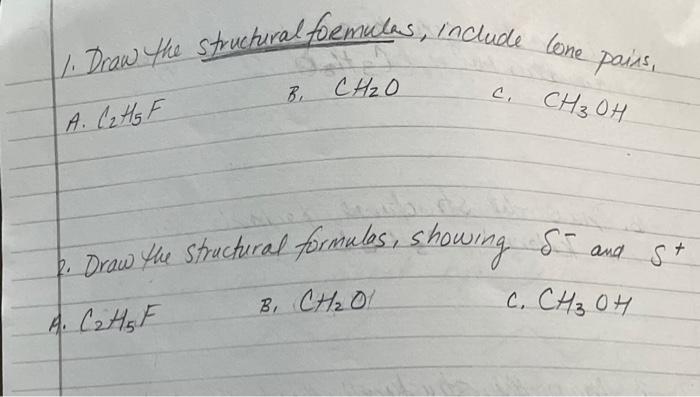 1. Draw the structural foemulas, include lone pairs.
A. C2H5F B. CH2O C. CH3OH
2. Draw the structural formulas, showing δ- and δ+
A. C2H5F B. CH2O C. CH3OH